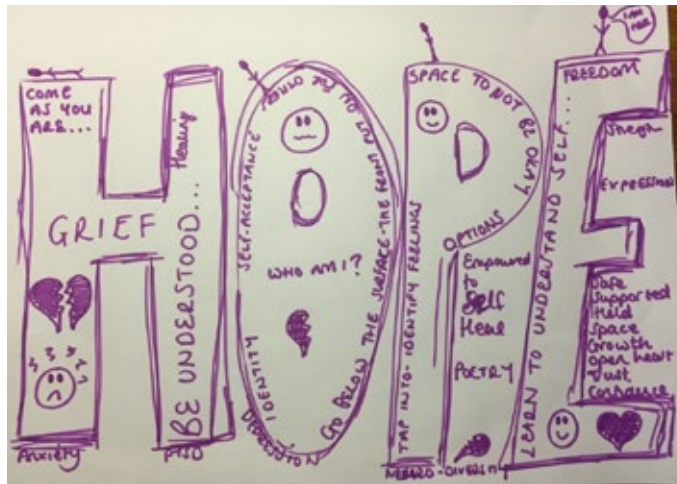 COME
AS YOU
ARE...
GRIEF
Anxiety
Healing
BE UNDERSTOOD...
PTSD
SELF-ACCEPTANCE
IDENTITY
DEPRESSION
GO BELOW THE SURFACE - THE FRONT PUT ON FOR OTHERS
WHO AM I?
SPACE TO NOT BE OKAY
OPTIONS
TAP INTO - IDENTIFY FEELINGS
Empowered
to
Self
Heal
POETRY
NEEDED - DIVERSITY
I AM
FREE
FREEDOM
LEARN TO UNDERSTAND SELF...
EXPRESSION
Safe
Supported
Held
Space
Growth
Open heart
Trust
Confidence